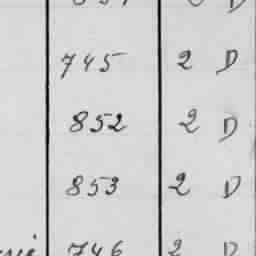 745 2 D
852 2 D
853 2 D
746 2 D